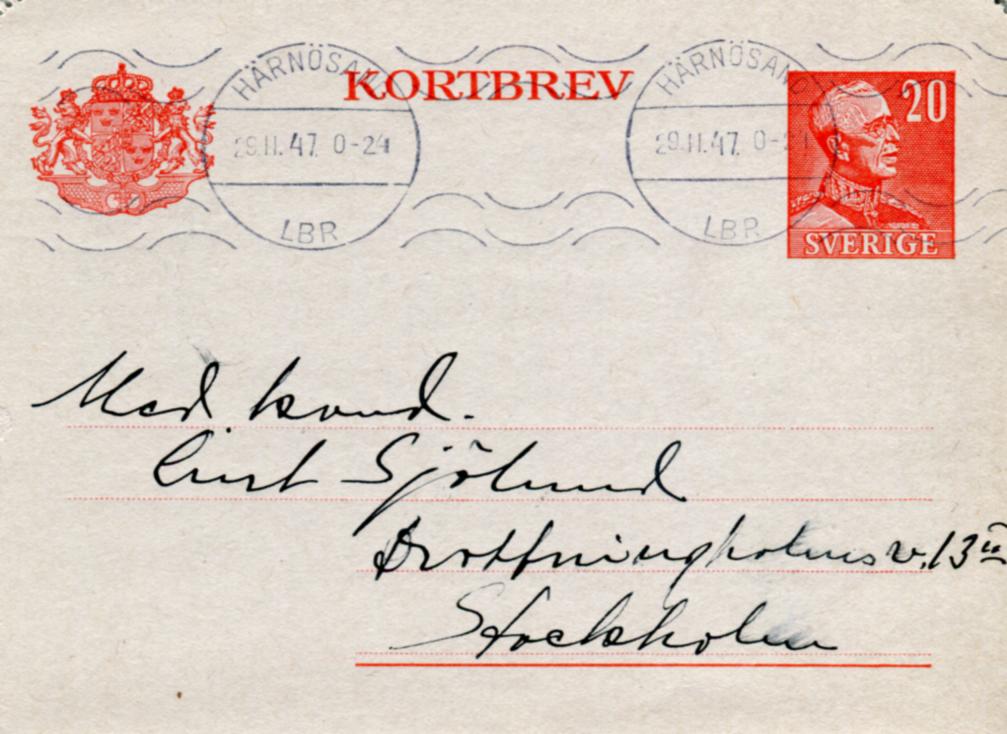 KORTBREV
HÄRNÖSAND
29.11.47. 0-24
LBR
HÄRNÖSAND
29.11.47. 0-24
LBR
20
SVERIGE
Med kand.
Curt Sjölund
Drottningholmsv. 13 II
Stockholm